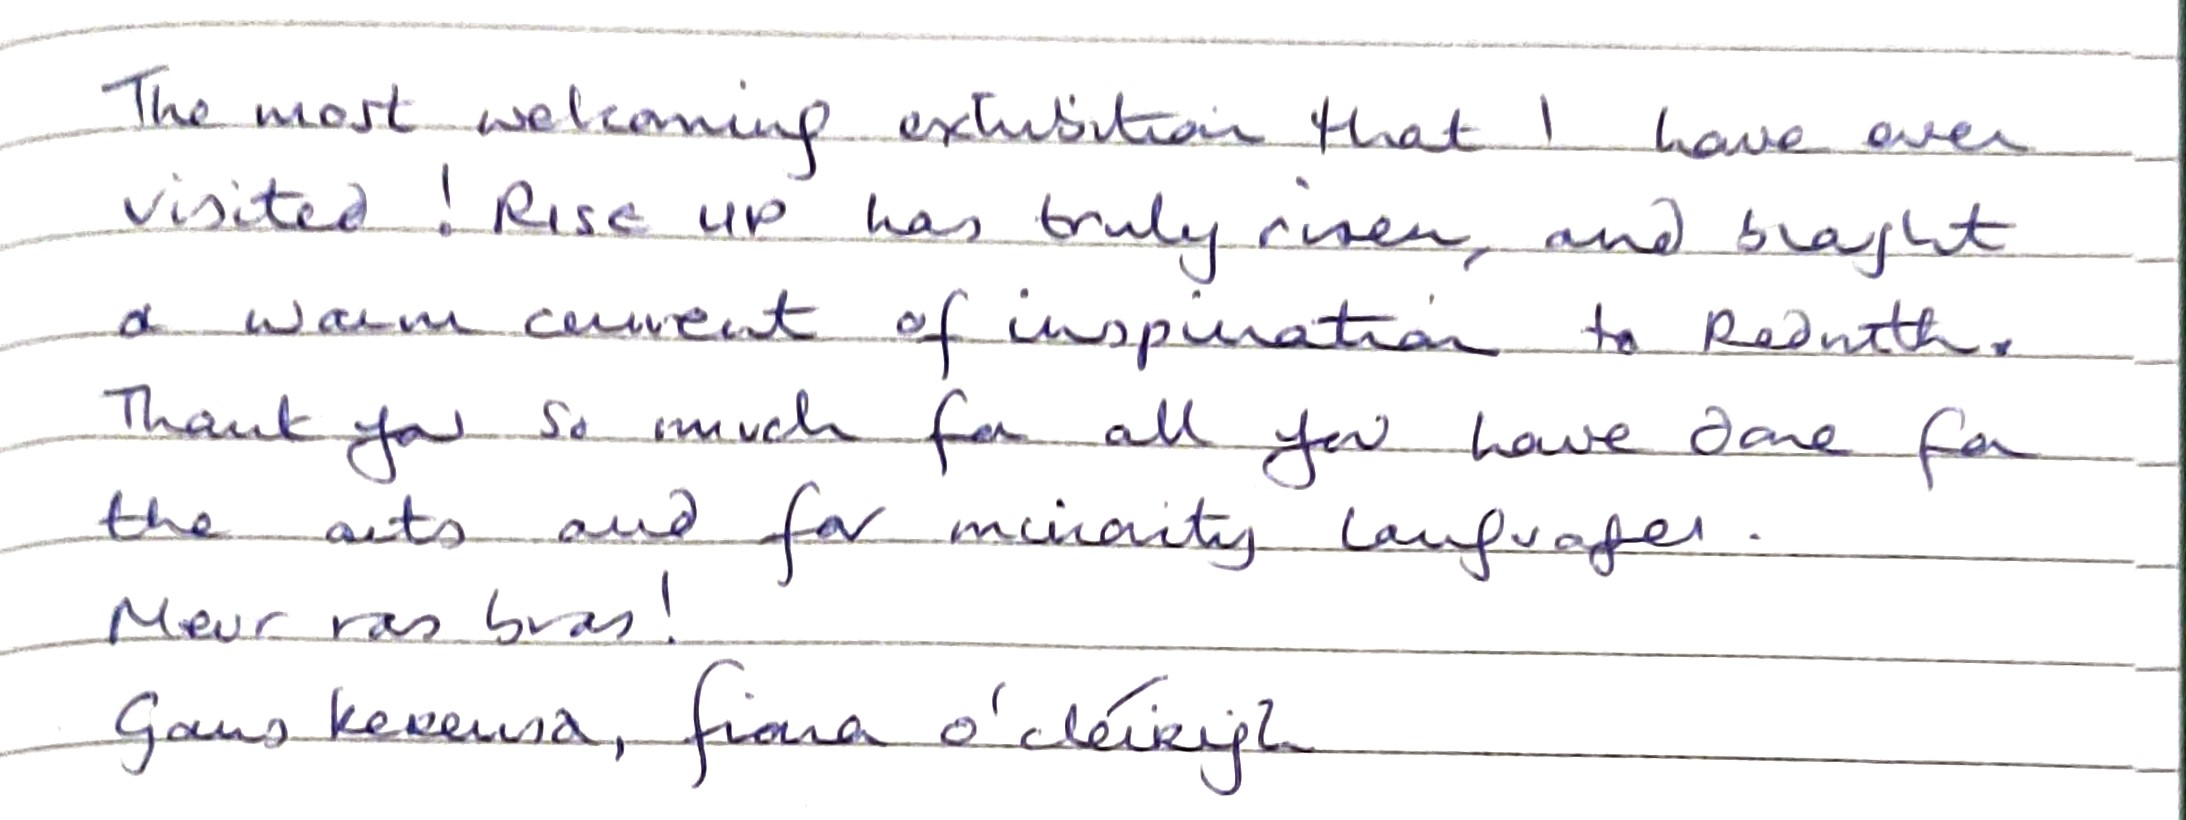 The most welcoming exhibition that I have ever
visited! Rise up has truly risen, and brought
a warm current of inspiration to Redruth.
Thank you so much for all you have done for
the arts and for minority languages.
Meur ras bras!
Gans kerensa, fiona o'cléirigh